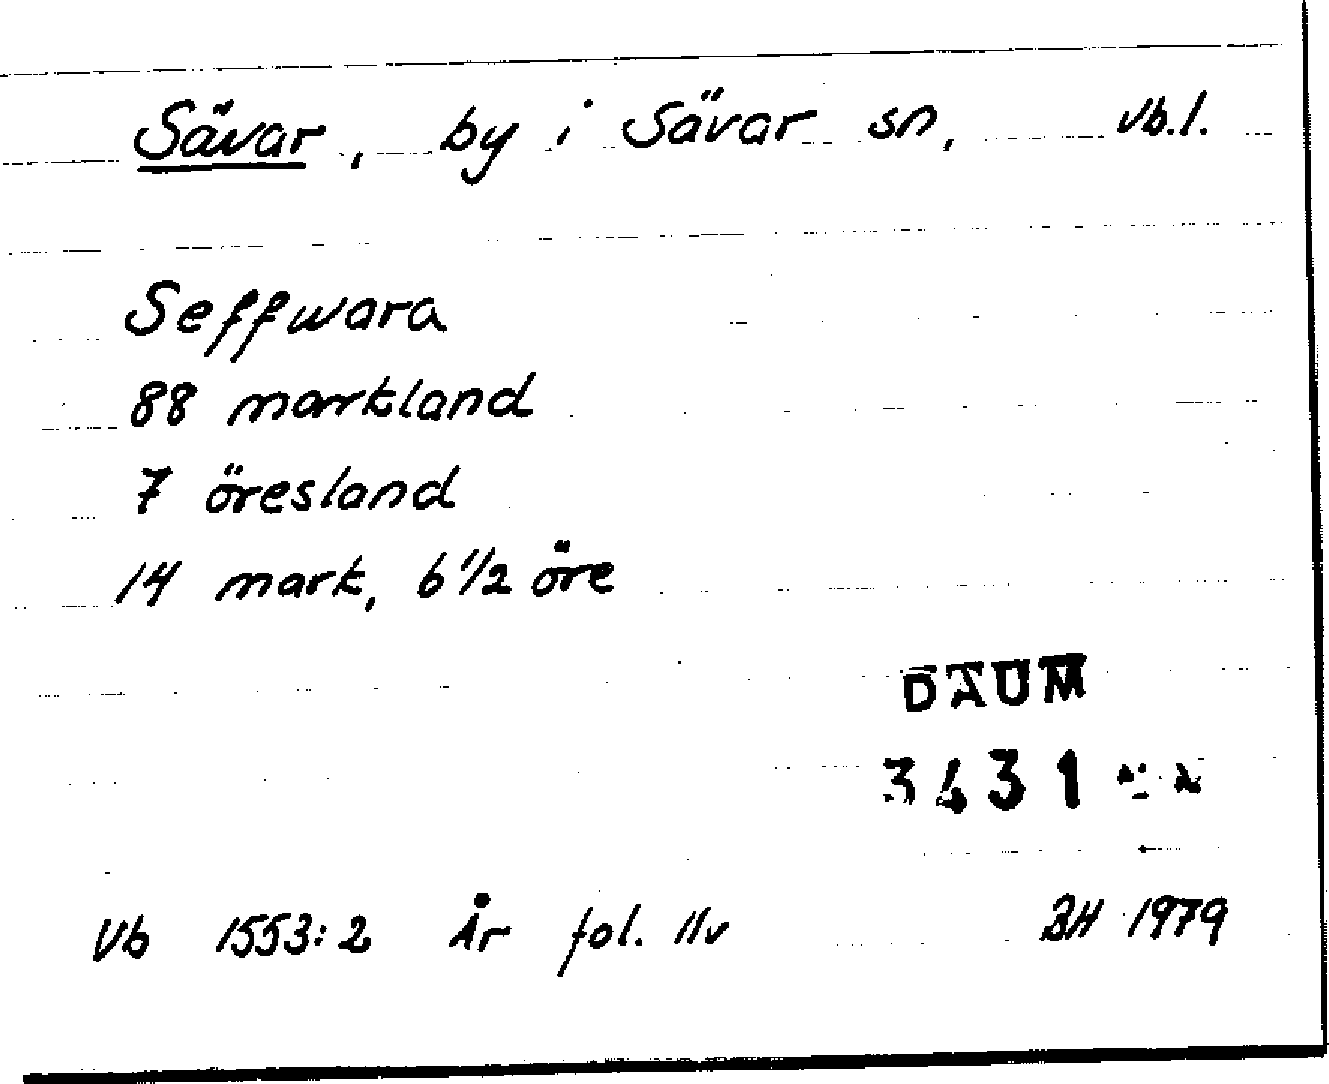 Sävar, by i Sävar sn, Vb.l.
Seffwara
88 markland
7 öresland
14 mark, 6 1/2 öre
DAUM
3431
Vb 1553:2 År fol. 11v BH 1979